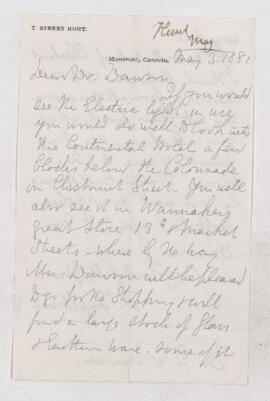 T. STERRY HUNT.
Hunt
May
Montreal, Canada, May 3, 1881
Dear Dr. Dawson
If you would
see the Electric light in use
you would do well to look into
the Continental Hotel a few
blocks below the Colonnade
on Chestnut Street. You will
also see it in Wanamaker's
great Store 13th & Market
Streets - where by the way
Mrs. Dawson will be pleased
to go for the Shopping & will
find a large stock of Glass
& Earthen ware. some of it